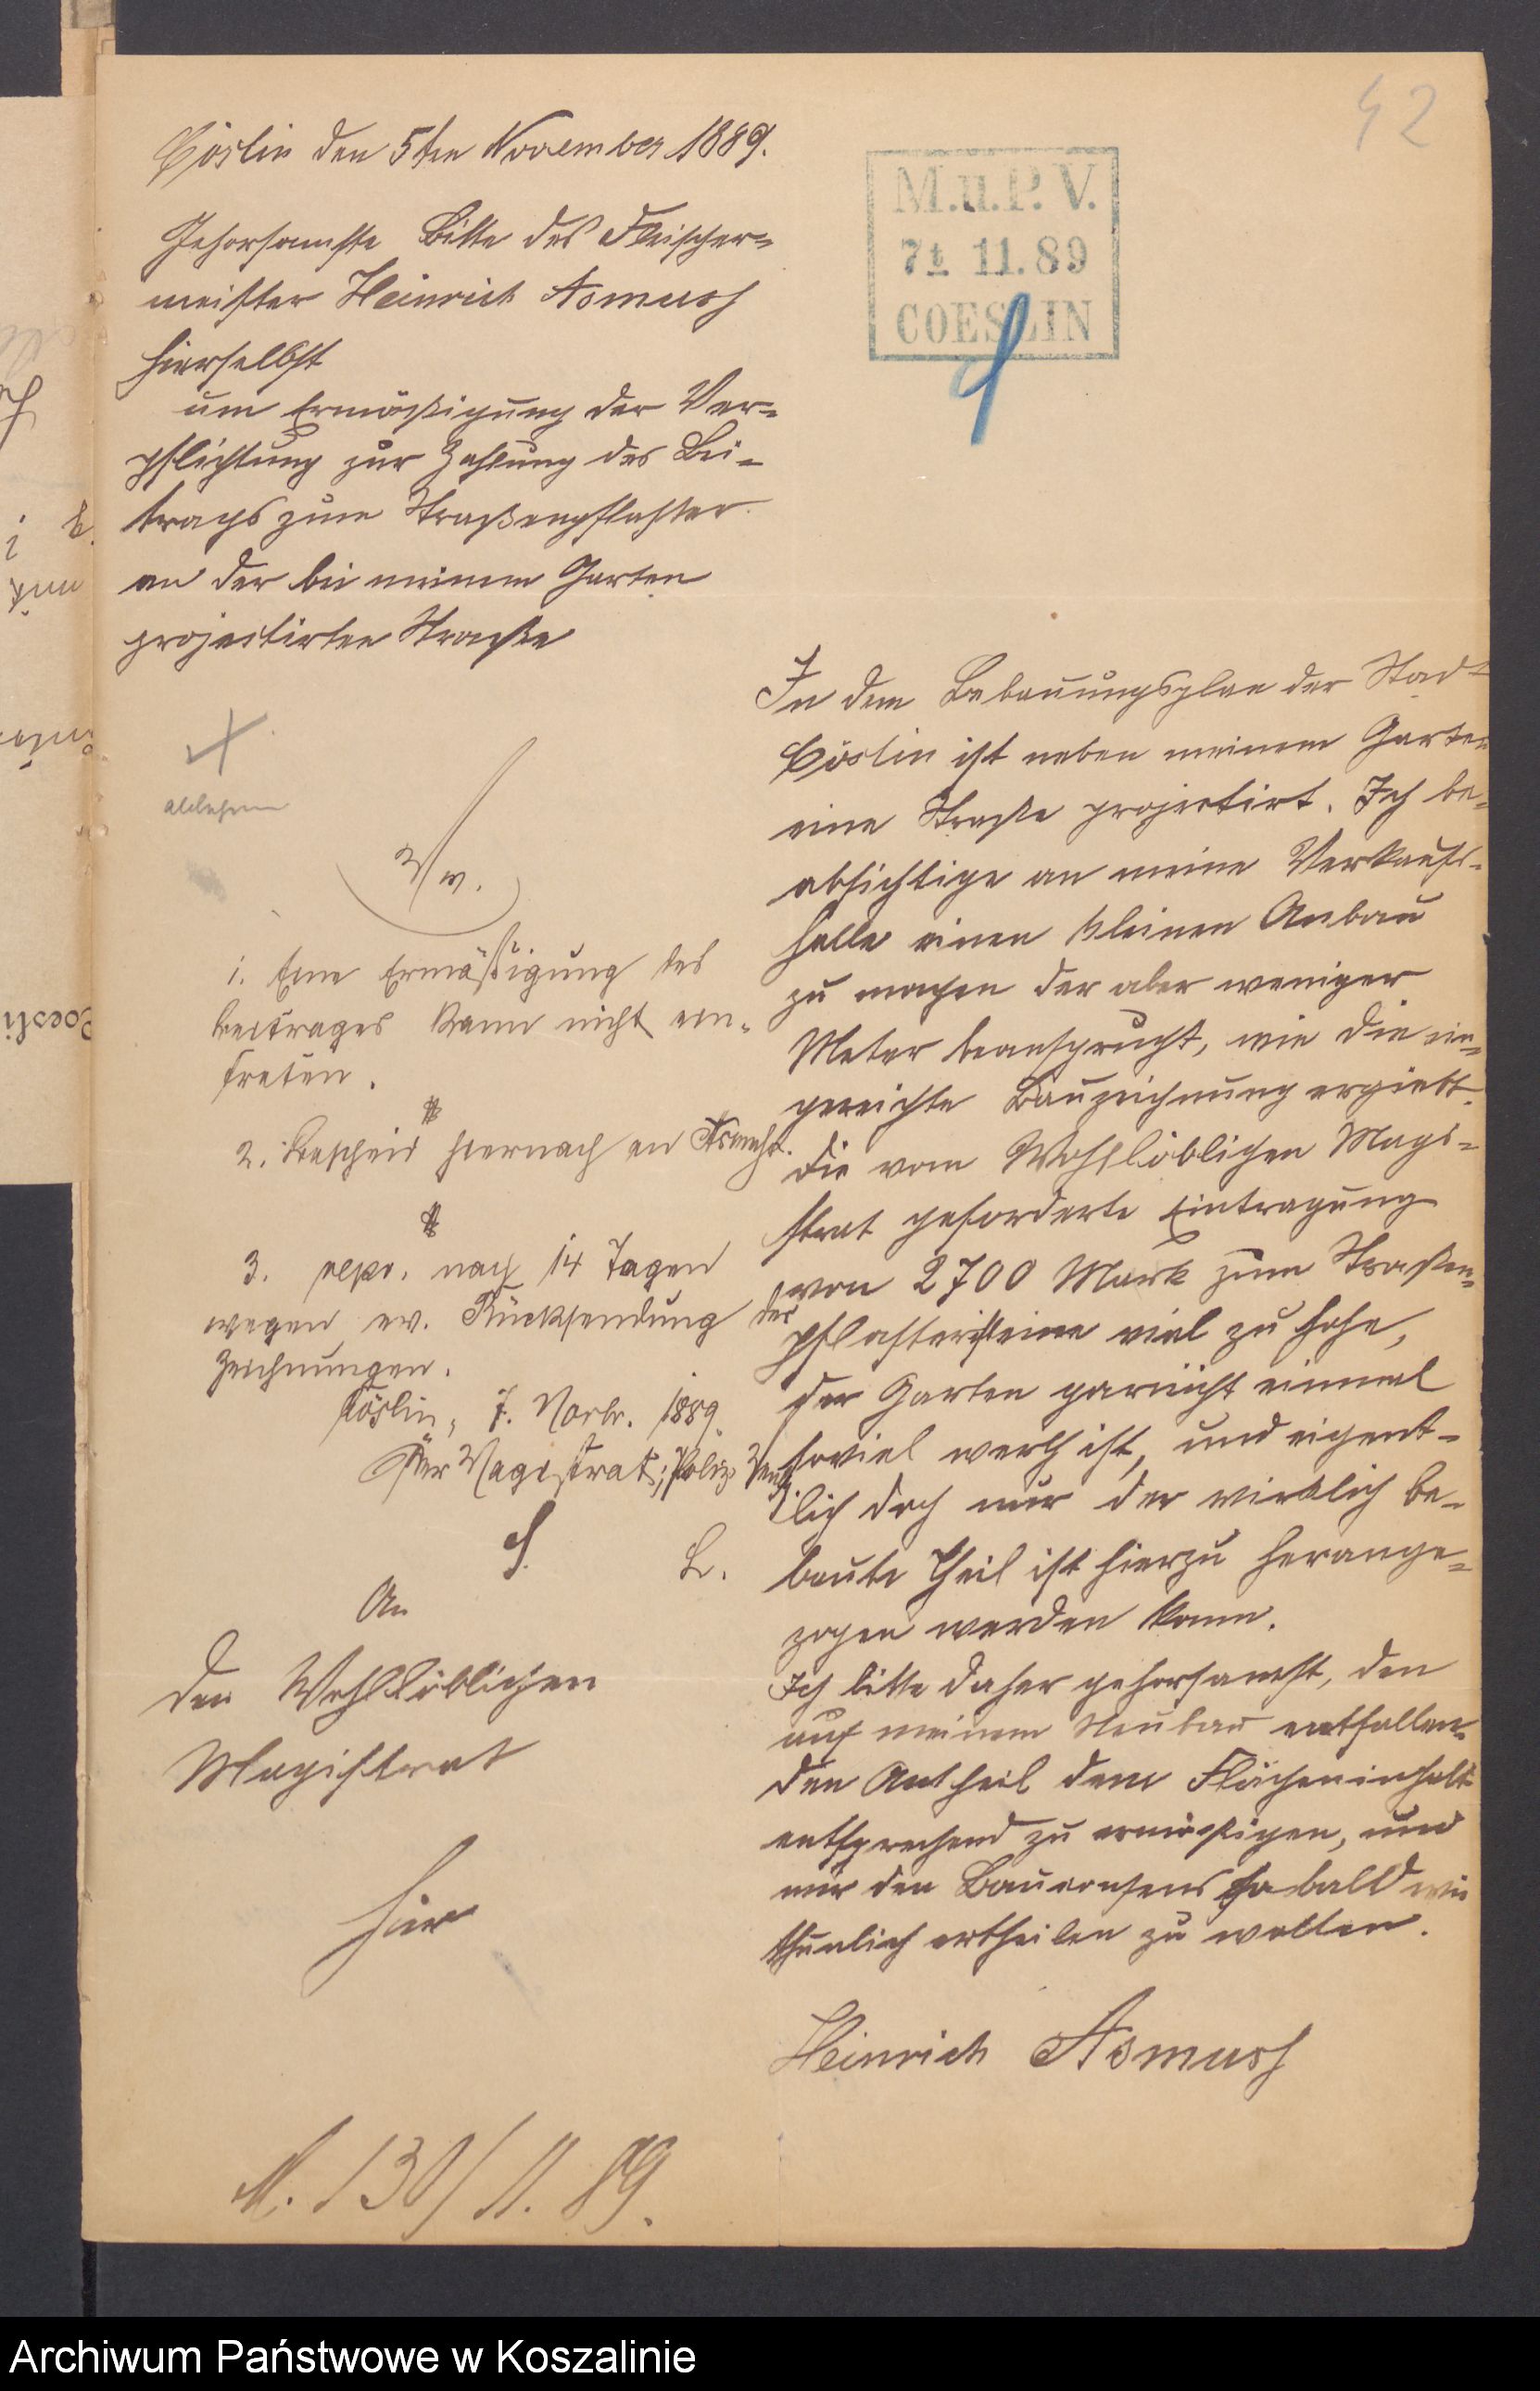 42
Cöslin den 5ten November 1889.
M.u.P.V.
7t 11.89
COESLIN
Gehorsamste Bitte des Fleischer-
meister Heinrich Asmuss
hierselbst
um Ermäßigung der Ver-
pflichtung zur Zahlung des Bei-
trags zum Straßenpflaster
an der bei meinem Garten
projectirten Straße
ablehnen
1. Eine Ermäßigung des
Beitrages kann nicht ein-
treten.
2. Bescheid hiernach an Asmuss.
3. repr. nach 14 Tagen
wegen ev. Rücksendung der
Zeichnungen.
Cöslin, 7. Novbr. 1889.
Der Magistrat; Poliz. Verw.
S. L.
An
den Wohllöblichen
Magistrat
hier
In dem Bebauungsplan der Stadt
Cöslin ist neben meinem Garten
eine Straße projectirt. Ich be-
absichtige an meine Verkaufs-
halle einen kleinen Anbau
zu machen der aber weniger
Meter beansprucht, wie die ein-
gereichte Bauzeichnung ergiebt.
Die vom Wohllöblichen Magi-
strat geforderte Eintragung
von 2700 Mark zum Straßen-
pflaster ist eine viel zu hohe,
der Garten garnicht einmal
soviel werth ist, und eigent-
lich doch nur der wirklich be-
baute Theil ist hierzu herange-
zogen werden kann.
Ich bitte daher gehorsamst, den
auf meinem Neubau entfallen-
den Antheil dem Flächeninhalt
entsprechend zu ermäßigen, und
mir den Bauconsens sobald wie
thunlich ertheilen zu wollen.
Heinrich Asmuss
M. 130/11. 89.
Archiwum Państwowe w Koszalinie